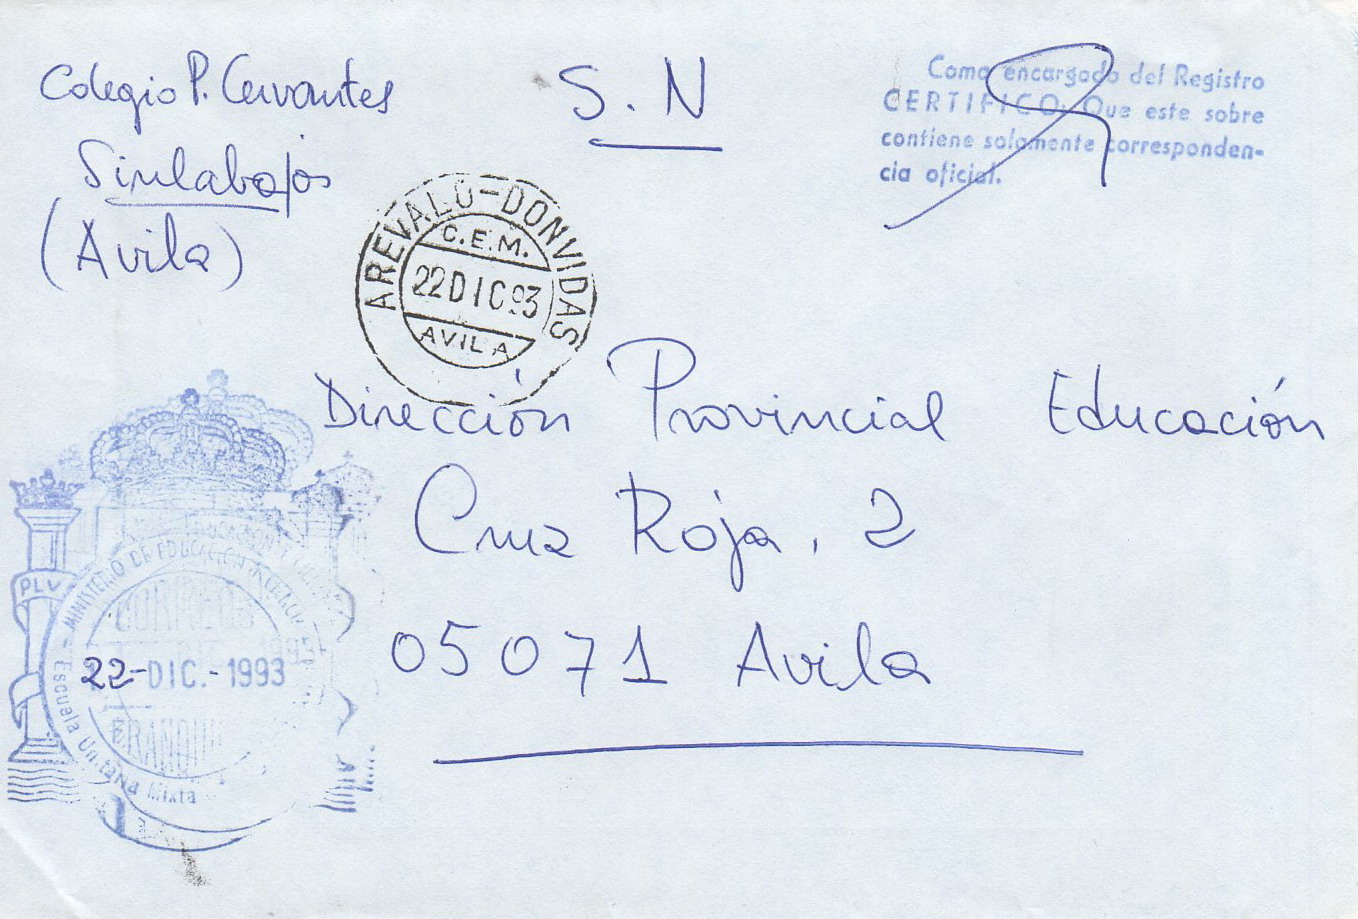 Colegio P. Cervantes
Sinlabajos
(Avila)
S. N
Como encargado del Registro
CERTIFICO: Que este sobre
contiene solamente corresponden-
cia oficial.
AREVALO-DONVIDAS
C.E.M.
22 DIC 93
AVILA
Dirección Provincial Educación
Cruz Roja, 2
05071 Avila
PLV
MINISTERIO DE EDUCACION
CORREOS
22-DIC.-1993
FRANQUI
Escuela Unitaria Mixta